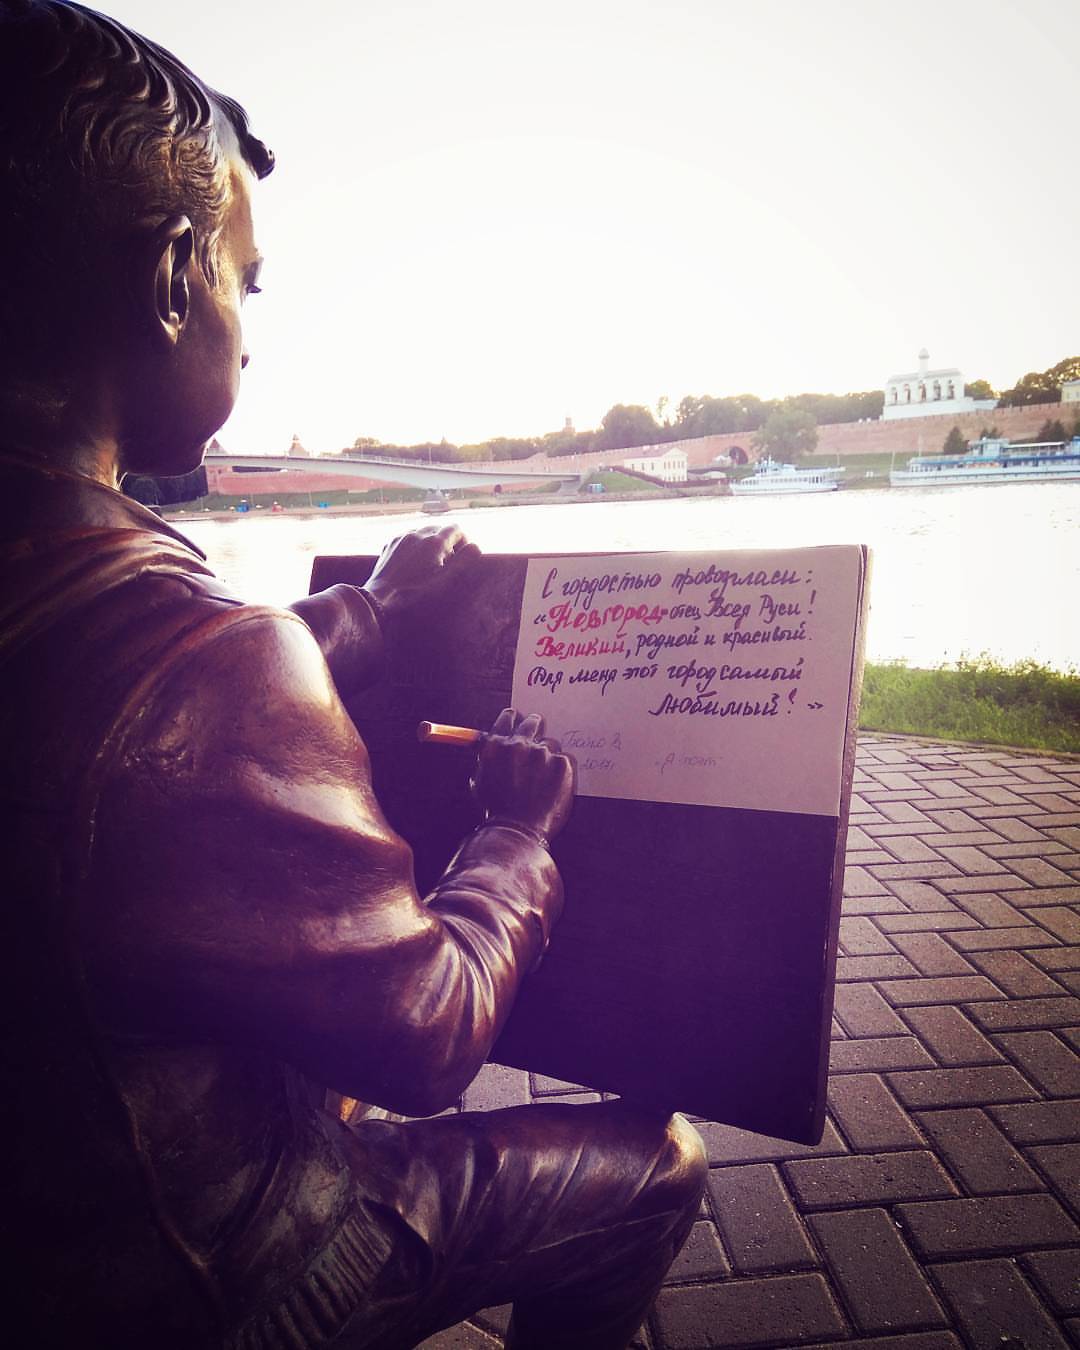 С гордостью провозгласи:
«Новгород-отец Всея Руси!
Великий, родной и красивый.
Для меня этот город самый
Любимый!»
2017г. "Я поэт"